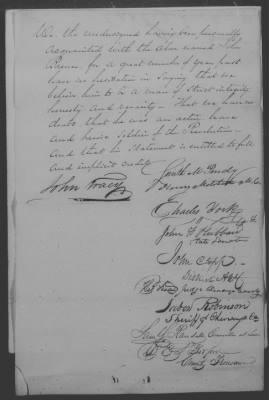 We the undersigned having been personally
acquainted with the above named John
for a great number of years past
have no hesitation in saying that we
believe him to be a man of strict integrity
honesty and veracity - That we have no
doubt that he was an active brave
and heroic Soldier of the Revolution -
and that his statement is entitled to full
and implicit credit
John Tracy
Smith M Purdy
Charles York
John F Hubbard
late Senator
John
District Atty
Judge Chenango County
Jabez Robinson
Sheriff of Chenango Co
Randall Counsellor at Law
County